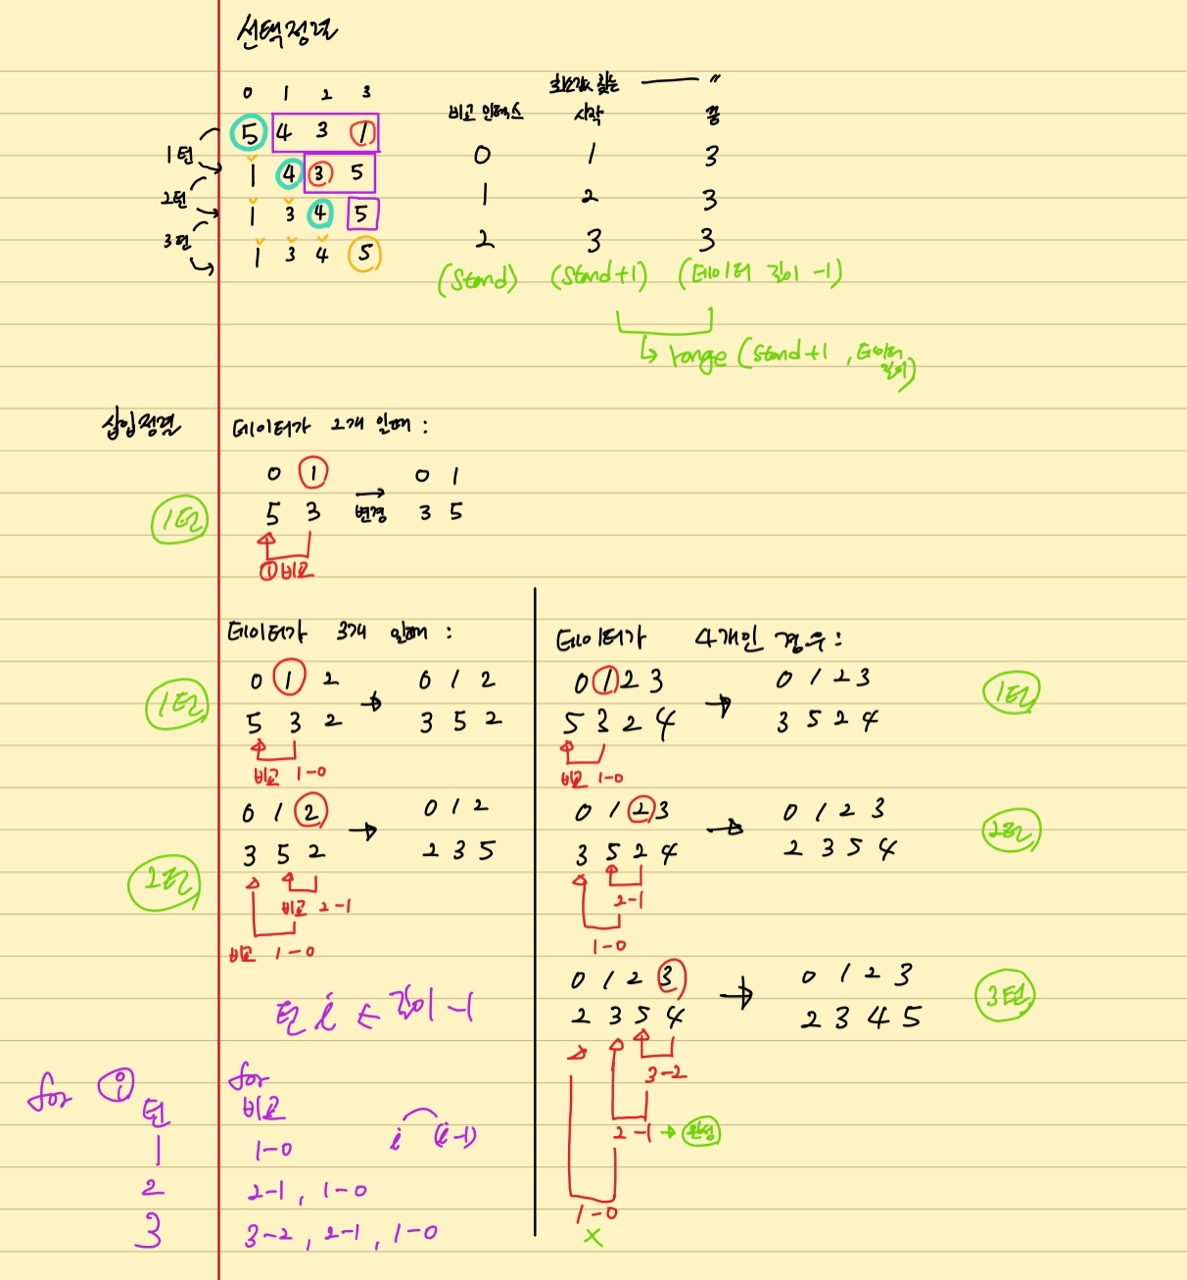 선택정렬
0 1 2 3
5 4 3 1
1턴
1 4 3 5
2턴
1 3 4 5
3턴
1 3 4 5
최솟값 찾는 ―― 〃
비교 인덱스 시작 끝
0 1 3
1 2 3
2 3 3
(Stand) (Stand+1) (데이터 길이 -1)
↳ range (Stand+1, 데이터 길이)
삽입정렬
데이터가 2개 일때 :
0 1 0 1
1턴
5 3 → 3 5
변경
① 비교
데이터가 3개 일때 :
1턴
0 1 2 → 0 1 2
5 3 2 3 5 2
비교 1-0
2턴
0 1 2 → 0 1 2
3 5 2 2 3 5
비교 2-1
비교 1-0
데이터가 4개인 경우:
0 1 2 3 → 0 1 2 3
5 3 2 4 3 5 2 4
1턴
비교 1-0
0 1 2 3 → 0 1 2 3
3 5 2 4 2 3 5 4
2턴
2-1
1-0
0 1 2 3 → 0 1 2 3
2 3 5 4 2 3 4 5
3턴
3-2
2-1 → 완성
1-0
X
턴 i ← 길이 -1
for i for
턴 비교
i (i-1)
1 1-0
2 2-1, 1-0
3 3-2, 2-1, 1-0